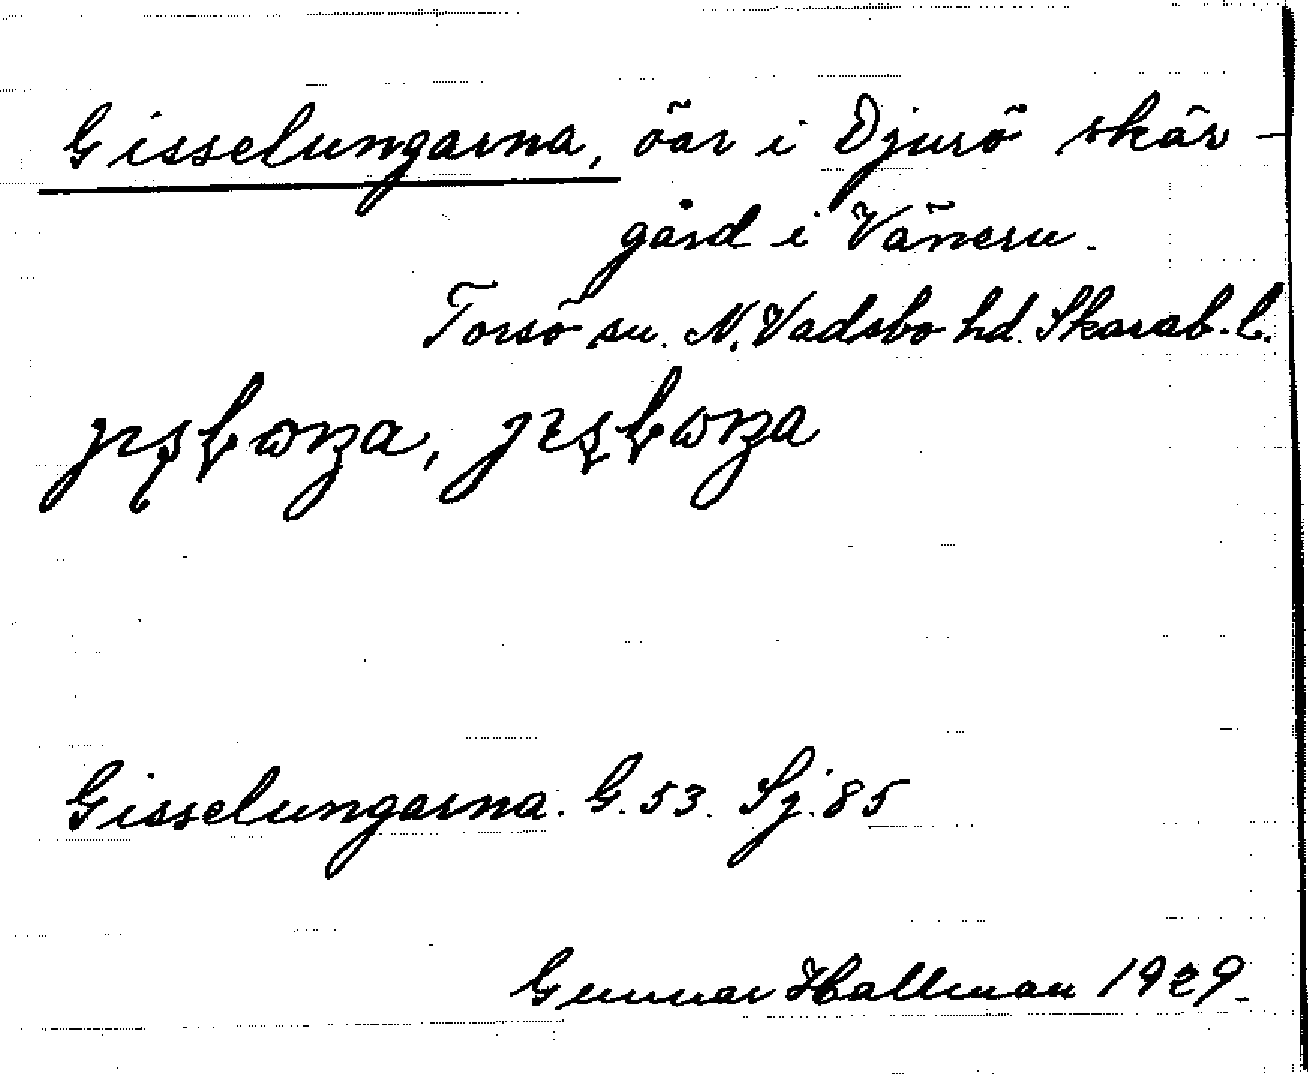 Gisselungarna, öar i Djurö skär-
gård i Vänern.
Torsö sn. N. Vadsbo hd. Skarab. l.
Gisselungarna. G. 53. Sj. 85
Gunnar Hallman 1929.